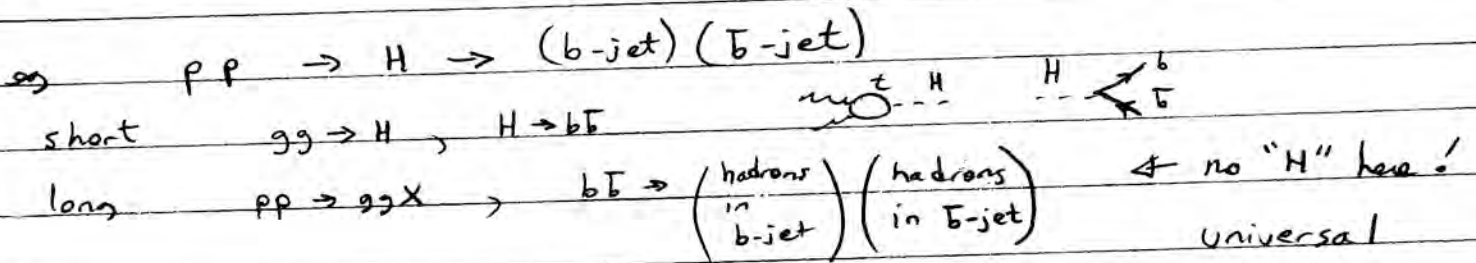 eg pp → H → (b-jet) (b̅-jet)
t H H b b̅
short gg → H , H → bb̅
long pp → ggX , bb̅ → (hadrons in b-jet) (hadrons in b̅-jet) ← no "H" here !
universal